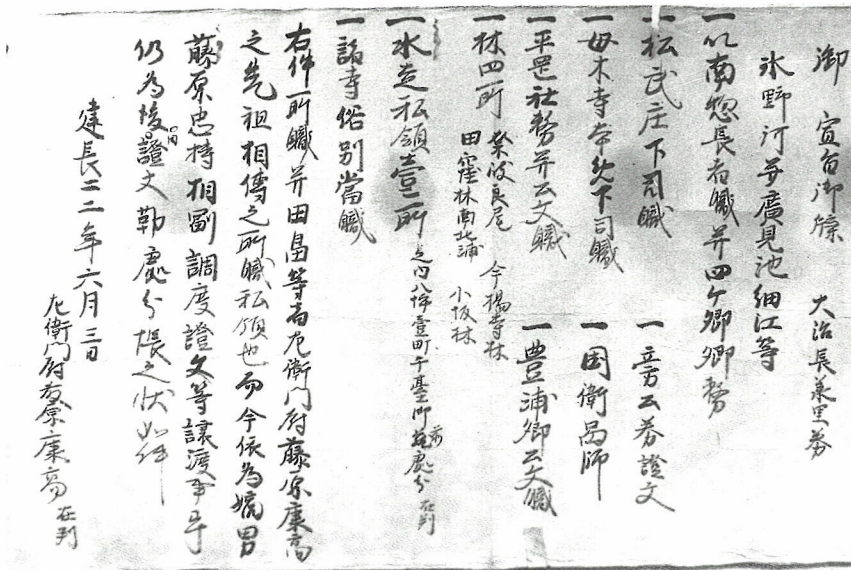 御 宣旨御牒 大治長兼黒券
氷野河并廣見池細江等
一以南惣長者職并四ケ郷郷務
一松武庄下司職 一 立券公券證文
一母木寺本免下司職 一 国衛図師
一平罡社務并公文職 一 豊浦郷公文職
一林四所 良尼 今楊寺林
田窪林南北浦 小坂林
一水走私領壹所 之内八坪壹町千壹町 處分在判
一諸寺俗別當職
右件所職并田畠等者左衛門尉藤原康高
之先祖相傳之所職私領也而今依為嫡男
藤原忠持相副調度證文等譲渡事乎
仍為後證文勒處分帳之状如件
建長二二年六月三日
左衛門尉藤原康高在判